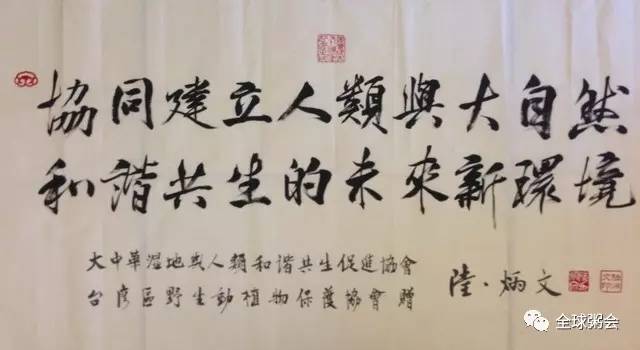 協同建立人類與大自然
和諧共生的未來新環境
大中華濕地與人類和諧共生促進協會
台灣區野生動植物保護協會贈
陸·炳文
全球粥会